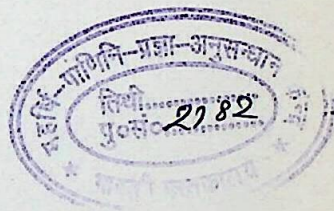 महर्षि-पाणिनि-प्रज्ञा-अनुसन्धान
तिथी..................
पु०सं० 2182